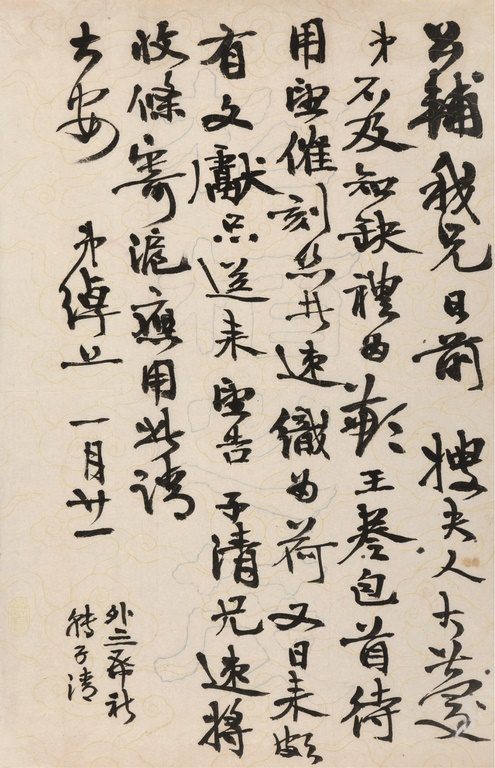 公輔我兄日前 嫂夫人大慶
弟不及知缺禮為歉王卷包首待
用望催刻絲速織為荷又日來頗
有文獻品送來望告子清兄速將
收條寄滬應用此請
大安 弟綽上 一月廿一
外三希
轉子清